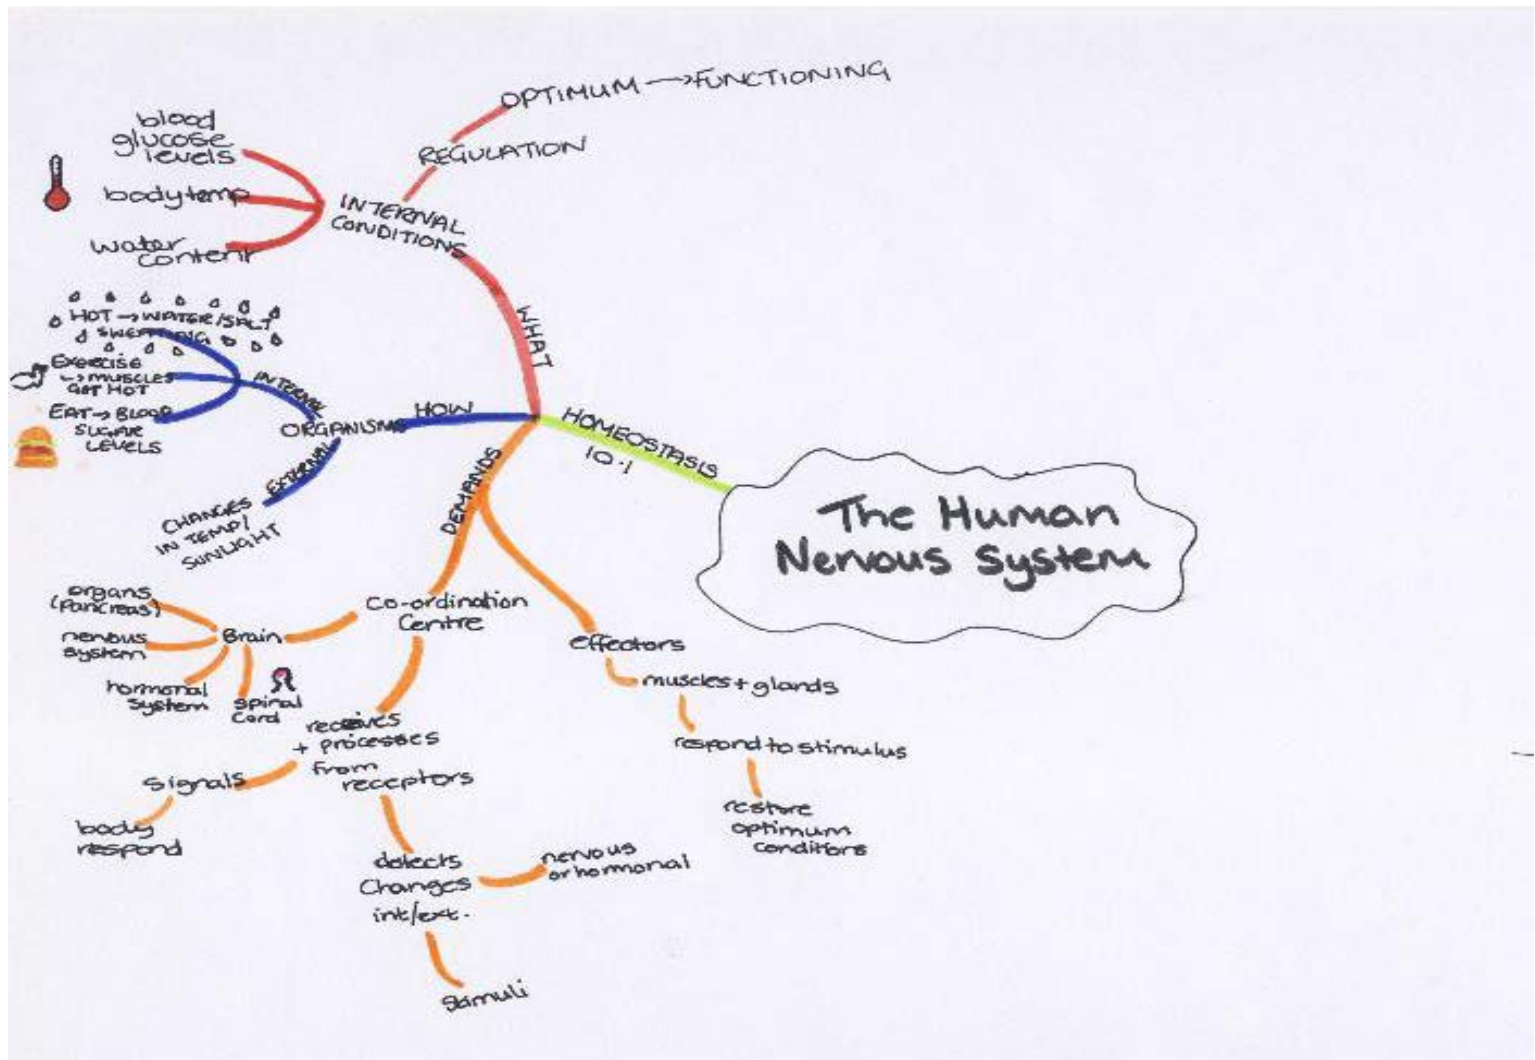 The Human
Nervous System
HOMEOSTASIS
10.1
WHAT
INTERNAL
CONDITIONS
REGULATION
OPTIMUM → FUNCTIONING
blood
glucose
levels
body temp
water
content
HOW
ORGANISMS
INTERNAL
HOT → WATER/SALT
SWEATING
EXERCISE
↳ MUSCLES
GET HOT
EAT → BLOOD
SUGAR
LEVELS
EXTERNAL
CHANGES
IN TEMP/
SUNLIGHT
DEMANDS
Co-ordination
Centre
Brain
organs
(pancreas)
nervous
system
hormonal
system
spinal
Cord
receives
+ processes
from
receptors
Signals
body
respond
detects
Changes
int/ext.
nervous
or hormonal
Stimuli
effectors
muscles + glands
respond to stimulus
restore
optimum
conditions